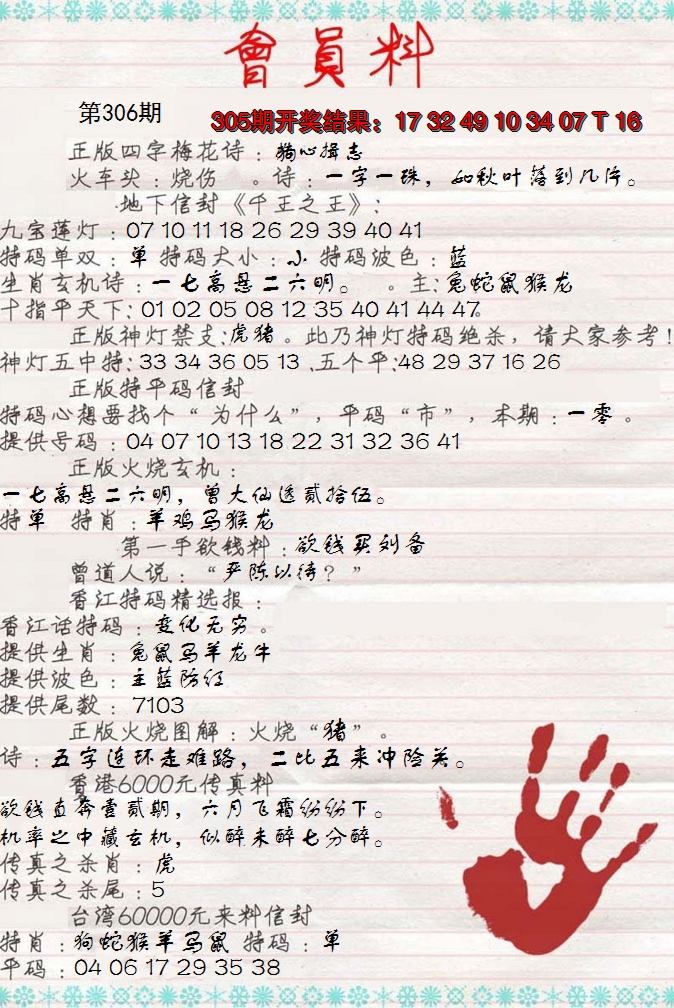 會員料
第306期
305期开奖结果：17 32 49 10 34 07 T 16
正版四字梅花诗：狗心揖志
火车头：烧伤 。诗：一字一珠，如秋叶落到几许。
地下信封《千王之王》：
九宝莲灯：07 10 11 18 26 29 39 40 41
特码单双：单 特码大小：小 特码波色：蓝
生肖玄机诗：一七高悬二六明。 。主：兔蛇鼠猴龙
十指平天下：01 02 05 08 12 35 40 41 44 47.
正版神灯禁支：虎猪。此乃神灯特码绝杀，请大家参考！
神灯五中特：33 34 36 05 13 .五个平：48 29 37 16 26
正版特平码信封
特码心想要找个“为什么”，平码“市”，本期：一零。
提供号码：04 07 10 13 18 22 31 32 36 41
正版火烧玄机：
一七高悬二六明，曾大仙透贰拾伍。
特单 特肖：羊鸡马猴龙
第一手欲钱料：欲钱买刘备
曾道人说：“严陈以待？”
香江特码精选报：
香江话特码：变化无穷。
提供生肖：兔鼠马羊龙牛
提供波色：主蓝防红
提供尾数：7103
正版火烧图解：火烧“猪”。
诗：五字连环走难路，二比五来冲险关。
香港6000元传真料
欲钱直奔壹贰期，六月飞霜纷纷下。
机率之中藏玄机，似醉未醉七分醉。
传真之杀肖：虎
传真之杀尾：5
台湾60000元来料信封
特肖：狗蛇猴羊马鼠 特码：单
平码：04 06 17 29 35 38